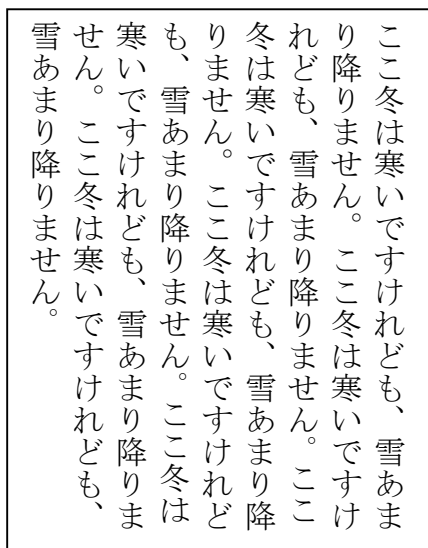 ここ冬は寒いですけれども、雪あま
り降りません。ここ冬は寒いですけ
れども、雪あまり降りません。ここ
冬は寒いですけれども、雪あまり降
りません。ここ冬は寒いですけれど
も、雪あまり降りません。ここ冬は
寒いですけれども、雪あまり降りま
せん。ここ冬は寒いですけれども、
雪あまり降りません。